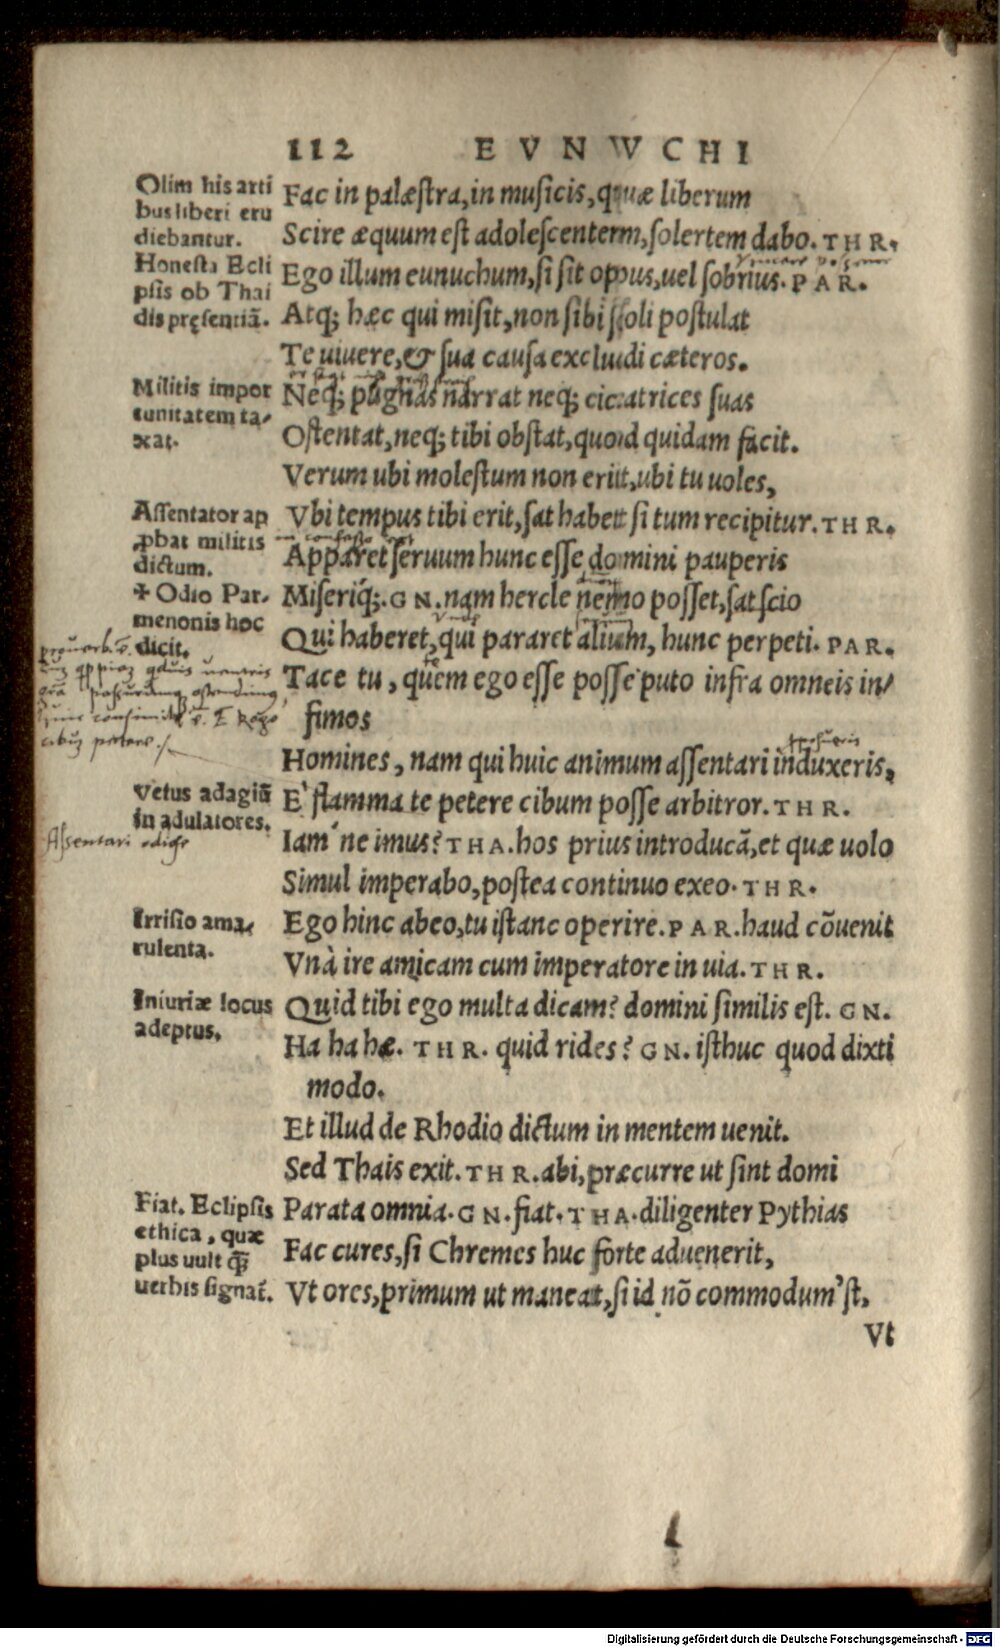 112 EVNVVCHI
Olim his arti
bus liberi eru
diebantur.
Honesta Ecli
psis ob Thai
dis pręsentiã.
Militis impor
tunitatem ta-
xat.
Assentator ap
ꝓbat militis
dictum.
✢ Odio Par-
menonis hoc
dicit.
Vetus adagiũ
in adulatores.
Assentari
Irrisio ama-
rulenta.
Iniuriæ locus
adeptus.
Fiat. Eclipsis
ethica, quæ
plus uult q̃
uerbis signat̃.
Fac in palæstra, in musicis, quæ liberum
Scire æquum est adolescentem, solertem dabo. THR.
Ego illum eunuchum, si sit opus, uel sobrius. PAR.
Atq; hæc qui misit, non sibi soli postulat
Te uiuere, & sua causa excludi cæteros.
Neq; pugnas narrat neq; cicatrices suas
Ostentat, neq; tibi obstat, quod quidam facit.
Verum ubi molestum non erit, ubi tu uoles,
Vbi tempus tibi erit, sat habet si tum recipitur. THR.
Apparet seruum hunc esse domini pauperis
Miseriq́;. GN. nam hercle nemo posset, sat scio
Qui haberet, qui pararet alium, hunc perpeti. PAR.
Tace tu, quem ego esse posse puto infra omneis in/
fimos
Homines, nam qui huic animum assentari induxeris,
E' flamma te petere cibum posse arbitror. THR.
Iam' ne imus? THA. hos prius introducã, et quæ uolo
Simul imperabo, postea continuo exeo. THR.
Ego hinc abeo, tu istanc operire. PAR. haud cõuenit
Vnà ire amicam cum imperatore in uia. THR.
Quid tibi ego multa dicam? domini similis est. GN.
Ha ha hæ. THR. quid rides? GN. isthuc quod dixti
modo.
Et illud de Rhodio dictum in mentem uenit.
Sed Thais exit. THR. abi, præcurre ut sint domi
Parata omnia. GN. fiat. THA. diligenter Pythias
Fac cures, si Chremes huc forte aduenerit,
Vt ores, primum ut maneat, si id nõ commodum'st,
Vt
Digitalisierung gefördert durch die Deutsche Forschungsgemeinschaft - DFG